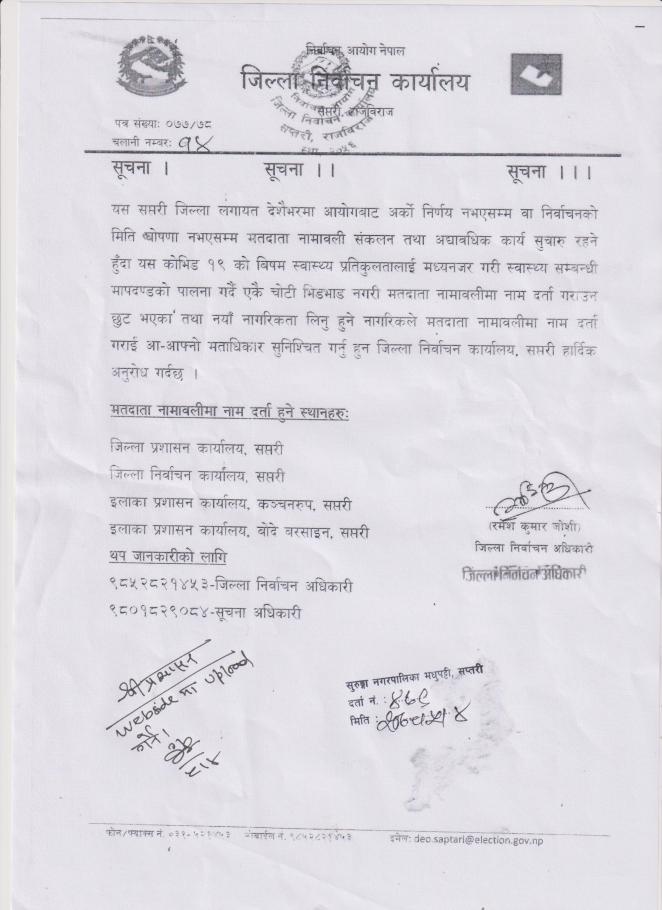 निर्वाचन आयोग नेपाल
जिल्ला निर्वाचन कार्यालय
सप्तरी, राजविराज
पत्र संख्याः ०७७/७८
चलानी नम्बरः १४
सूचना । सूचना ।। सूचना ।।।
यस सप्तरी जिल्ला लगायत देशैभरमा आयोगबाट अर्को निर्णय नभएसम्म वा निर्वाचनको
मिति घोषणा नभएसम्म मतदाता नामावली संकलन तथा अद्यावधिक कार्य सुचारु रहने
हुँदा यस कोभिड १९ को बिषम स्वास्थ्य प्रतिकुलतालाई मध्यनजर गरी स्वास्थ्य सम्बन्धी
मापदण्डको पालना गर्दै एकै चोटी भिडभाड नगरी मतदाता नामावलीमा नाम दर्ता गराउन
छुट भएका तथा नयाँ नागरिकता लिनु हुने नागरिकले मतदाता नामावलीमा नाम दर्ता
गराई आ-आफ्नो मताधिकार सुनिश्चित गर्नु हुन जिल्ला निर्वाचन कार्यालय, सप्तरी हार्दिक
अनुरोध गर्दछ ।
मतदाता नामावलीमा नाम दर्ता हुने स्थानहरुः
जिल्ला प्रशासन कार्यालय, सप्तरी
जिल्ला निर्वाचन कार्यालय, सप्तरी
इलाका प्रशासन कार्यालय, कञ्चनरुप, सप्तरी
इलाका प्रशासन कार्यालय, बोदे बरसाइन, सप्तरी
थप जानकारीको लागि
९८५२८२१४५३-जिल्ला निर्वाचन अधिकारी
९८०१८२९०८४-सूचना अधिकारी
(रमेश कुमार जोशी)
जिल्ला निर्वाचन अधिकारी
जिल्ला निर्वाचन अधिकारी
श्री प्रशासन
Webside मा upload
गर्ने ।
सुरुङ्गा नगरपालिका मधुपट्टी, सप्तरी
दर्ता नं. :
मिति :
फोन/फ्याक्स नं. ०३१-५२१४५३ मोबाईल नं. ९८५२८२१४५३ इमेलः deo.saptari@election.gov.np